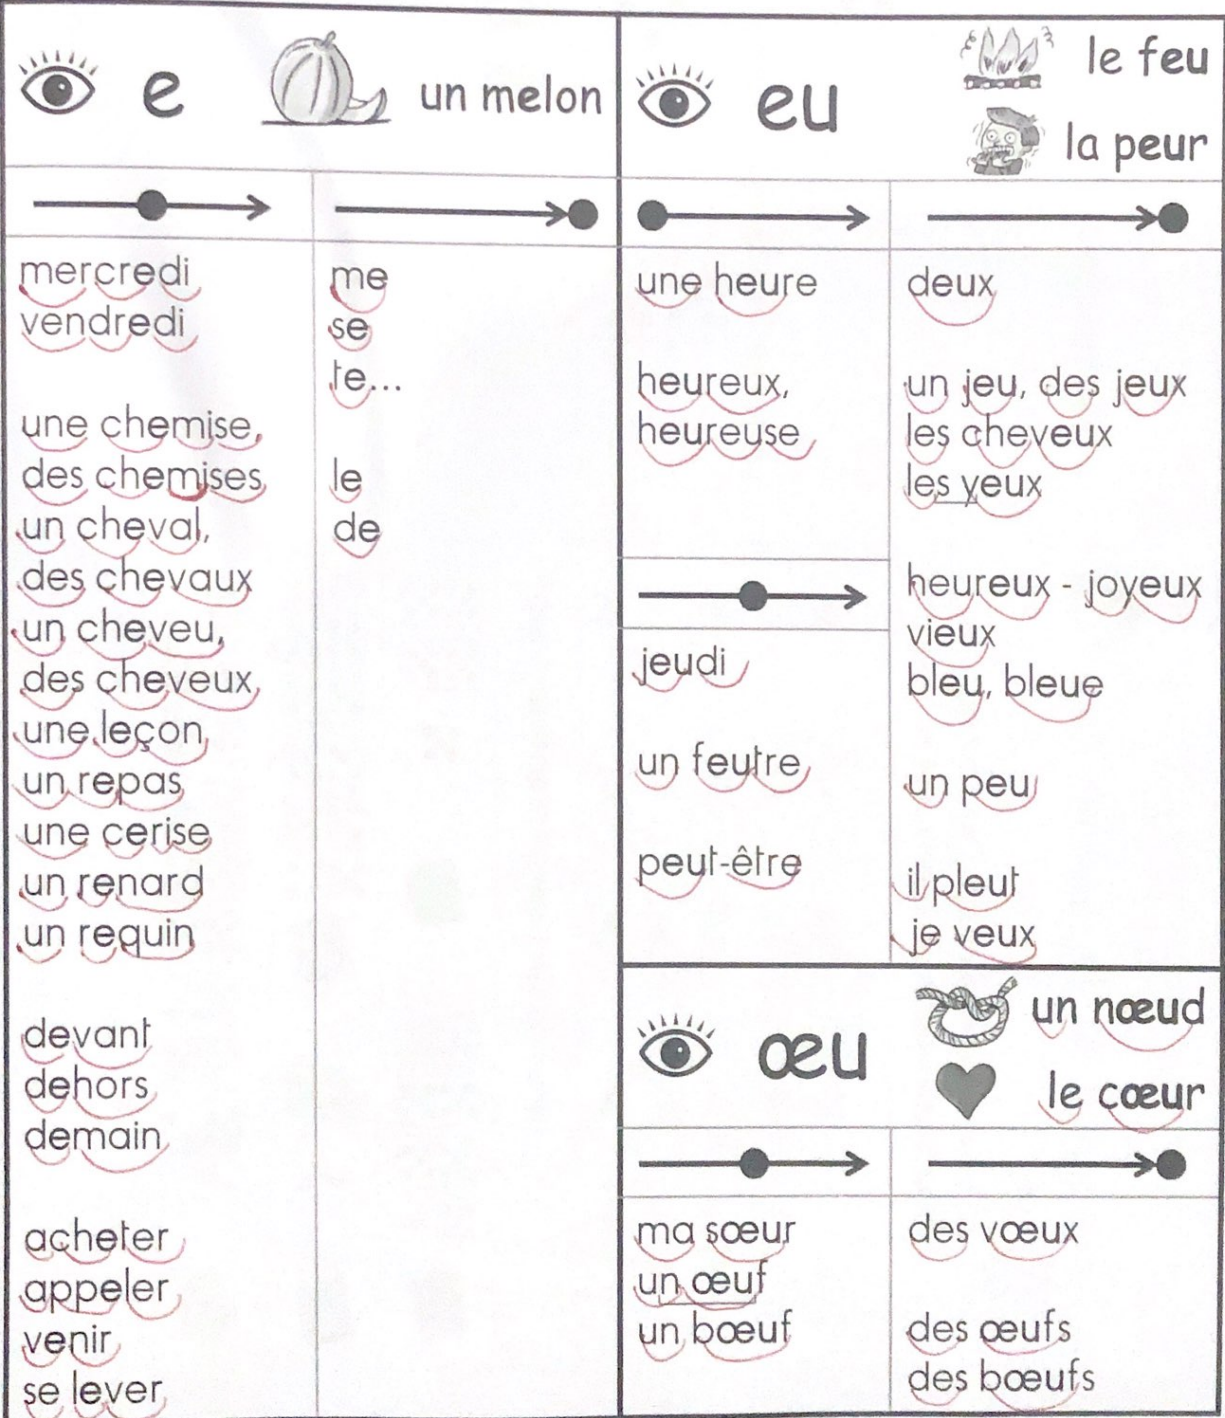 e
un melon
mercredi
vendredi
une chemise,
des chemises
un cheval,
des chevaux
un cheveu,
des cheveux
une leçon
un repas
une cerise
un renard
un requin
devant
dehors
demain
acheter
appeler
venir
se lever
me
se
te...
le
de
eu
le feu
la peur
une heure
heureux,
heureuse
jeudi
un feutre
peut-être
deux
un jeu, des jeux
les cheveux
les yeux
heureux - joyeux
vieux
bleu, bleue
un peu
il pleut
je veux
œu
un nœud
le cœur
ma sœur
un œuf
un bœuf
des vœux
des œufs
des bœufs